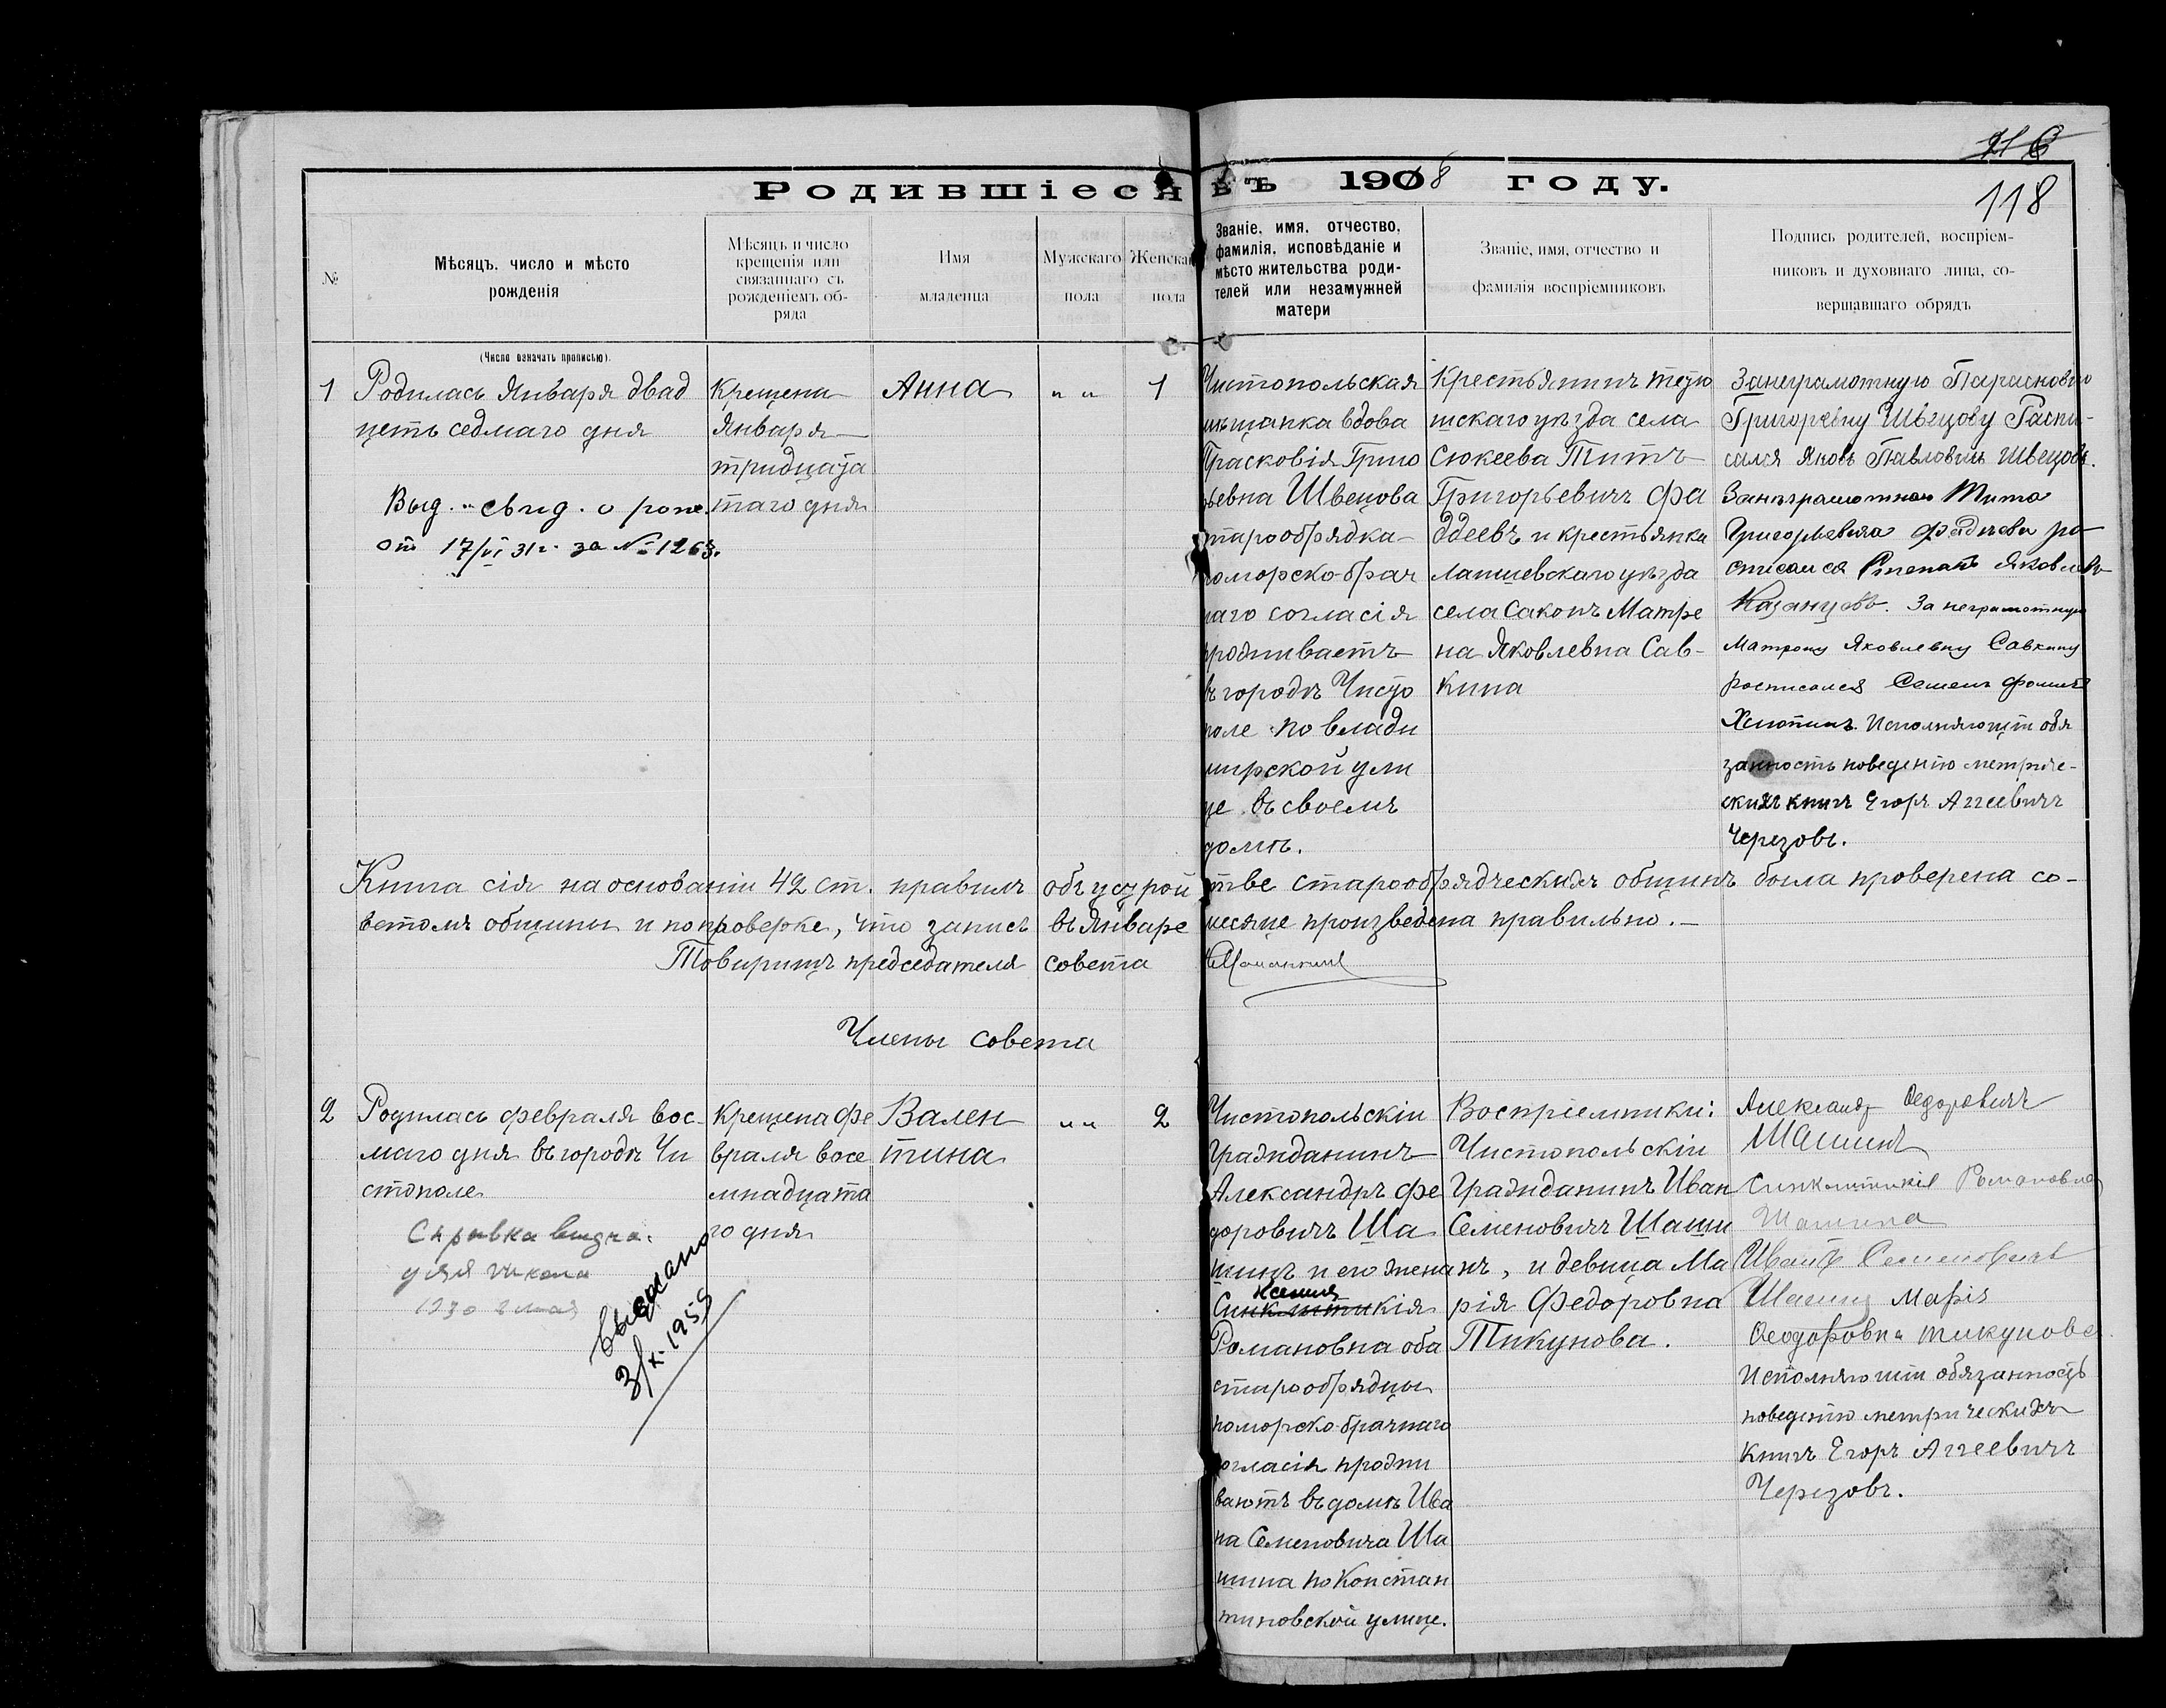 21 6
118
Родившіеся въ 1908 году.
№
Мѣсяцъ, число и мѣсто
рожденія
Мѣсяцъ и число
крещенія или
связаннаго съ
рожденіемъ об-
ряда
Имя
младенца
Мужскаго
пола
Женскаго
пола
Званіе, имя, отчество,
фамилія, исповѣданіе и
мѣсто жительства роди-
телей или незамужней
матери
Званіе, имя, отчество и
фамилія воспріемниковъ
Подпись родителей, воспріем-
никовъ и духовнаго лица, со-
вершавшаго обрядъ
(Число означать прописью).
1
Родилась Января двад
цеть седмаго дня
Выд. свид. о рожд.
от 17/VI 31 г. за № 1263.
Крещена
Января
тридцата
таго дня
Анна
" "
1
Чистопольская
мѣщанка вдова
Прасковія Григо
рьевна Швецова
старообрядка
поморско-брач
наго согласія
проживаетъ
въ городѣ Чисто
поле по влади
мирской ули
це въ своемъ
домѣ.
Крестьянинъ тетю
шскаго уѣзда села
Сюкеева Титъ
Григорьевичъ Фа
ддеевъ и крестьянка
лапшевскаго уѣзда
села Саконъ Матре
на Яковлевна Сав-
кина
Занеграмотную Парасковью
Григорьевну Швецову Распи-
сался Яковъ Павловичъ Швецовъ.
Занеграмотнаго Тита
Григорьевича Фадеева ра
списался Степанъ Яковлевъ
Казанцевъ. За неграмотную
Матрону Яковлевну Савкину
росписался Семенъ Фомичъ
Хлюпинъ. Исполняющій обя
занность поведенію метриче-
скихъ книгъ Егоръ Аггеевичъ
Черезовъ.
Книга сія на основаніи 42 ст. правилъ объ устрой стве старообрядческихъ общинъ была проверена со-
ветомъ общины и попроверке, что запись въ Январе месяце произведена правильно.—
Товарищъ председателя совета
Члены совета
2
Родилась февраля вос-
маго дня въ городѣ Чи
стополе
Справка выдана
для школы
1930 8 мая
выдано
3/X-1959
Крещена фе
враля восе
мнадцата
го дня
Вален
тина
" "
2
Чистопольскіи
Гражданинъ
Александръ Фе
доровичъ Ша
шинъ и его жена
Ксения
Синклитикія
Романовна оба
старообрядцы
поморско-брачнаго
согласія прожи
ваютъ въ домѣ Ива
на Семеновича Ша
шина по Констан
тиновской улице.
Воспріемники:
Чистопольскіи
Гражданинъ Иван
Семеновичъ Шаши
нъ, и девица Ма
рія Федоровна
Тикунова.
Александр Федоровичъ
Шашинъ
Синклитикія Романовна
Шашина
Иванъ Семеновичъ
Шашинъ Марія
Феодоровна Тикунова
Исполняющіи обязанность
поведенію метрическихъ
книгъ Егоръ Аггеевичъ
Черезовъ.